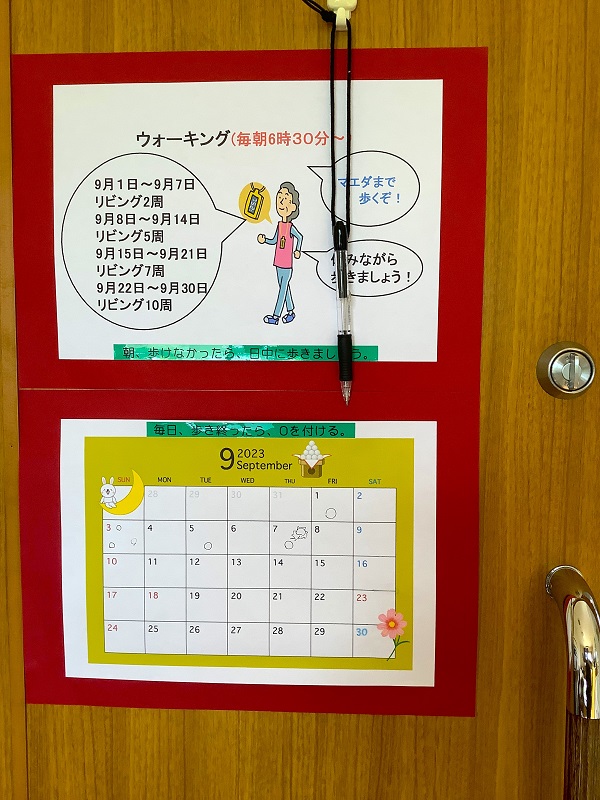 ウォーキング(毎朝6時30分～)
9月1日～9月7日
リビング2周
9月8日～9月14日
リビング5周
9月15日～9月21日
リビング7周
9月22日～9月30日
リビング10周
マエダまで
歩くぞ！
みながら
歩きましょう！
朝、歩けなかったら、日中に歩きましょう。
毎日、歩き終ったら、○を付ける。
9 2023
September
SUN MON TUE WED THU FRI SAT
28 29 30 31 1 2
3 4 5 6 7 8 9
10 11 12 13 14 15 16
17 18 19 20 21 22 23
24 25 26 27 28 29 30